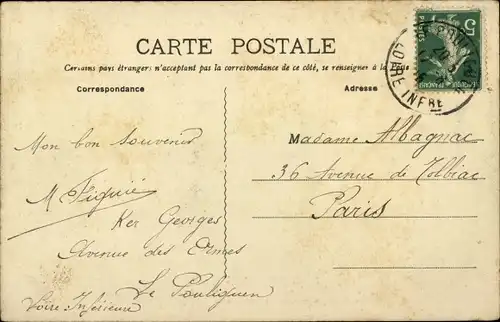 CARTE POSTALE
Certains pays étrangers n'acceptant pas la correspondance de ce côté, se renseigner à la Poste
Correspondance
Adresse
Mon bon souvenir
M Figuié
Ker Georges
Avenue des Ormes
Le Pouliguen
Loire Inférieure
Madame Albagnac
36 Avenue de Tolbiac
Paris
5
LOIRE INFRE